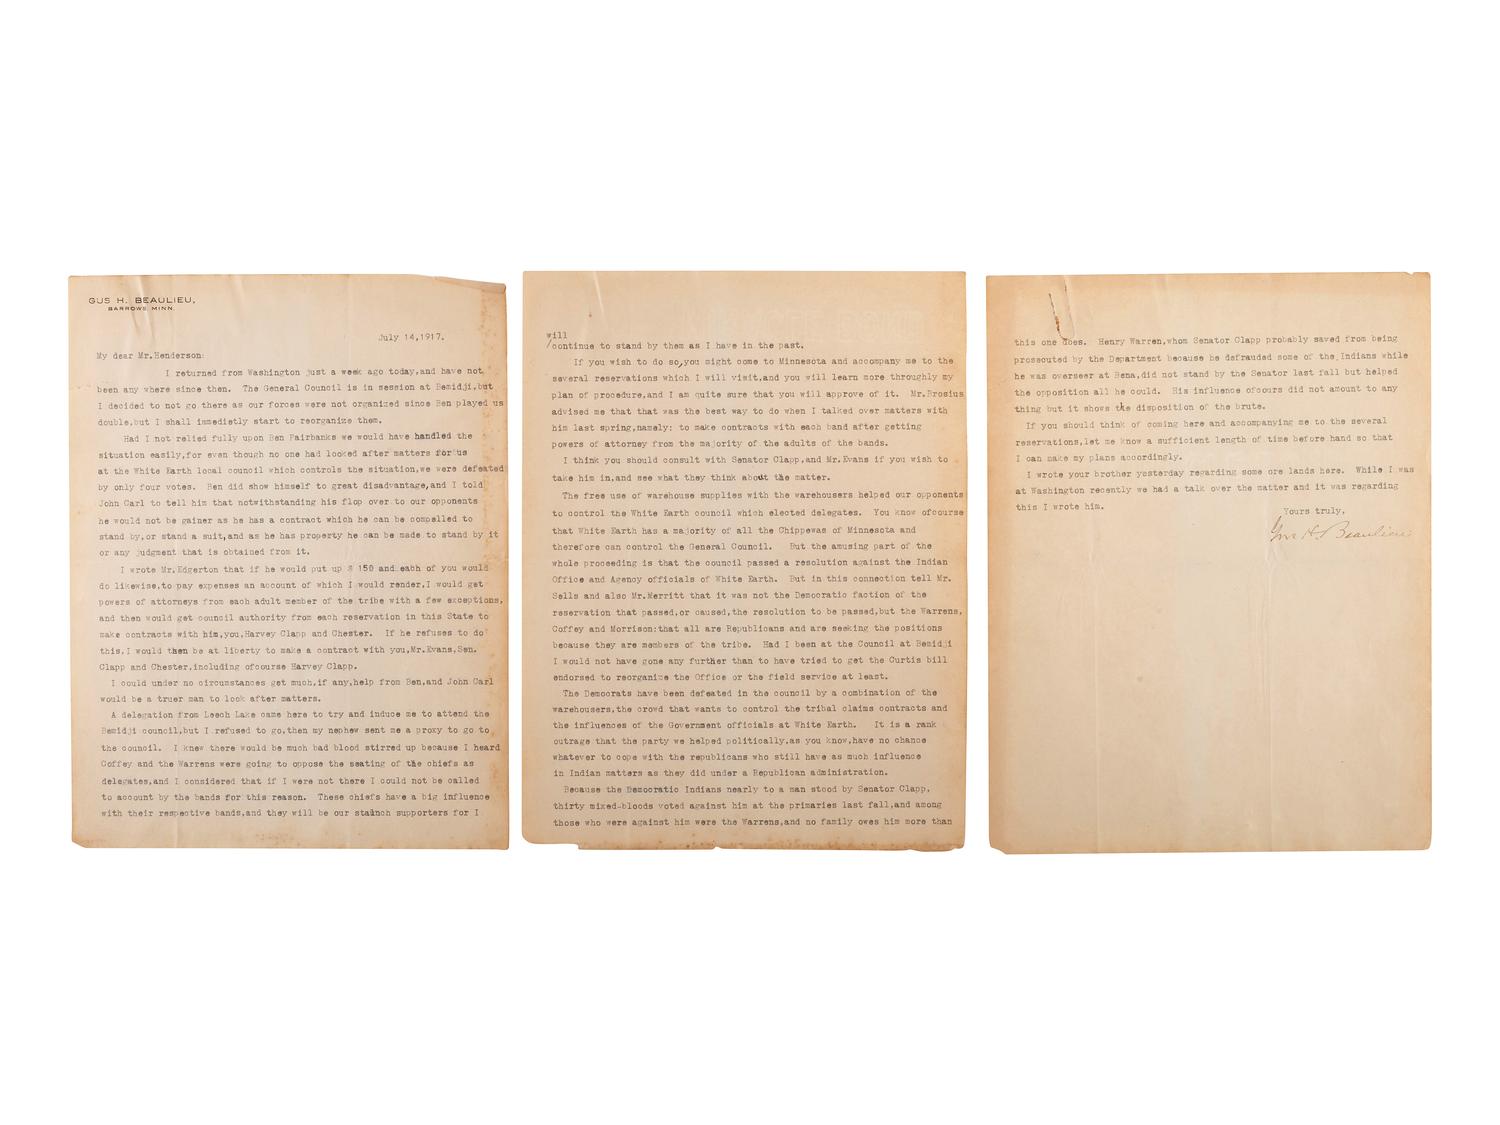 GUS H. BEAULIEU,
BARROWS MINN.
July 14,1917.
My dear Mr.Henderson:
I returned from Washington just a week ago today,and have not
been any where since then. The General Council is in session at Bemidji,but
I decided to not go there as our forces were not organized since Ben played us
double,but I shall immedietly start to reorganize them.
Had I not relied fully upon Ben Fairbanks we would have handled the
situation easily,for even though no one had looked after matters for us
at the White Earth local council which controls the situation,we were defeated
by only four votes. Ben did show himself to great disadvantage,and I told
John Carl to tell him that notwithstanding his flop over to our opponents
he would not be gainer as he has a contract which he can be compelled to
stand by,or stand a suit,and as he has property he can be made to stand by it
or any judgment that is obtained from it.
I wrote Mr.Edgerton that if he would put up $ 150 and each of you would
do likewise,to pay expenses an account of which I would render,I would get
powers of attorneys from each adult member of the tribe with a few exceptions,
and then would get council authority from each reservation in this State to
make contracts with him,you,Harvey Clapp and Chester. If he refuses to do
this,I would then be at liberty to make a contract with you,Mr.Evans,Sen.
Clapp and Chester,including ofcourse Harvey Clapp.
I could under no circumstances get much,if any,help from Ben,and John Carl
would be a truer man to look after matters.
A delegation from Leech Lake came here to try and induce me to attend the
Bemidji council,but I refused to go,then my nephew sent me a proxy to go to
the council. I knew there would be much bad blood stirred up because I heard
Coffey and the Warrens were going to oppose the seating of the chiefs as
delegates,and I considered that if I were not there I could not be called
to account by the bands for this reason. These chiefs have a big influence
with their respective bands,and they will be our staunch supporters for I
will
continue to stand by them as I have in the past.
If you wish to do so,you might come to Minnesota and accompany me to the
several reservations which I will visit,and you will learn more throughly my
plan of procedure,and I am quite sure that you will approve of it. Mr.Brosius
advised me that that was the best way to do when I talked over matters with
him last spring,namely: to make contracts with each band after getting
powers of attorney from the majority of the adults of the bands.
I think you should consult with Senator Clapp,and Mr.Evans if you wish to
take him in,and see what they think about the matter.
The free use of warehouse supplies with the warehousers helped our opponents
to control the White Earth council which elected delegates. You know ofcourse
that White Earth has a majority of all the Chippewas of Minnesota and
therefore can control the General Council. But the amusing part of the
whole proceeding is that the council passed a resolution against the Indian
Office and Agency officials of White Earth. But in this connection tell Mr.
Sells and also Mr.Merritt that it was not the Democratic faction of the
reservation that passed,or caused,the resolution to be passed,but the Warrens,
Coffey and Morrison:that all are Republicans and are seeking the positions
because they are members of the tribe. Had I been at the Council at Bemidji
I would not have gone any further than to have tried to get the Curtis bill
endorsed to reorganize the Office or the field service at least.
The Democrats have been defeated in the council by a combination of the
warehousers,the crowd that wants to control the tribal claims contracts and
the influences of the Government officials at White Earth. It is a rank
outrage that the party we helped politically,as you know,have no chance
whatever to cope with the republicans who still have as much influence
in Indian matters as they did under a Republican administration.
Because the Democratic Indians nearly to a man stood by Senator Clapp,
thirty mixed-bloods voted against him at the primaries last fall,and among
those who were against him were the Warrens,and no family owes him more than
this one does. Henry Warren,whom Senator Clapp probably saved from being
prosecuted by the Department because he defrauded some of the Indians while
he was overseer at Bena,did not stand by the Senator last fall but helped
the opposition all he could. His influence ofcours did not amount to any
thing but it shows the disposition of the brute.
If you should think of coming here and accompanying me to the several
reservations,let me know a sufficient length of time before hand so that
I can make my plans accordingly.
I wrote your brother yesterday regarding some ore lands here. While I was
at Washington recently we had a talk over the matter and it was regarding
this I wrote him.
Yours truly,
Gus H. Beaulieu